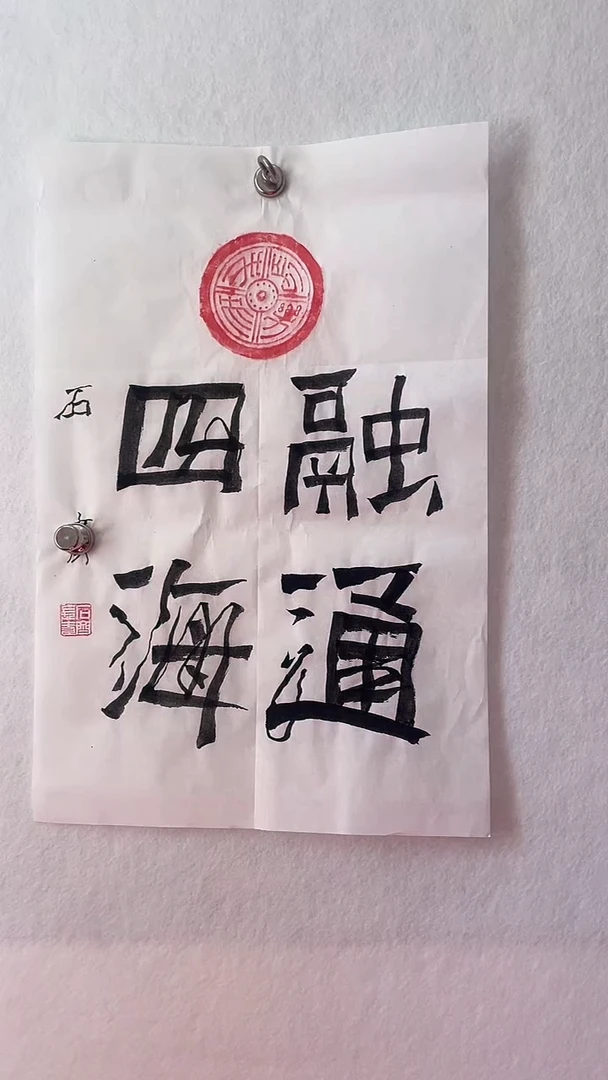 融通
四海
石